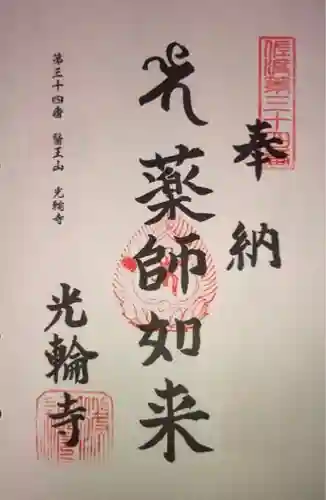 佐渡第三十四番
奉納
薬師如来
光輪寺
第三十四番 醫王山 光輪寺